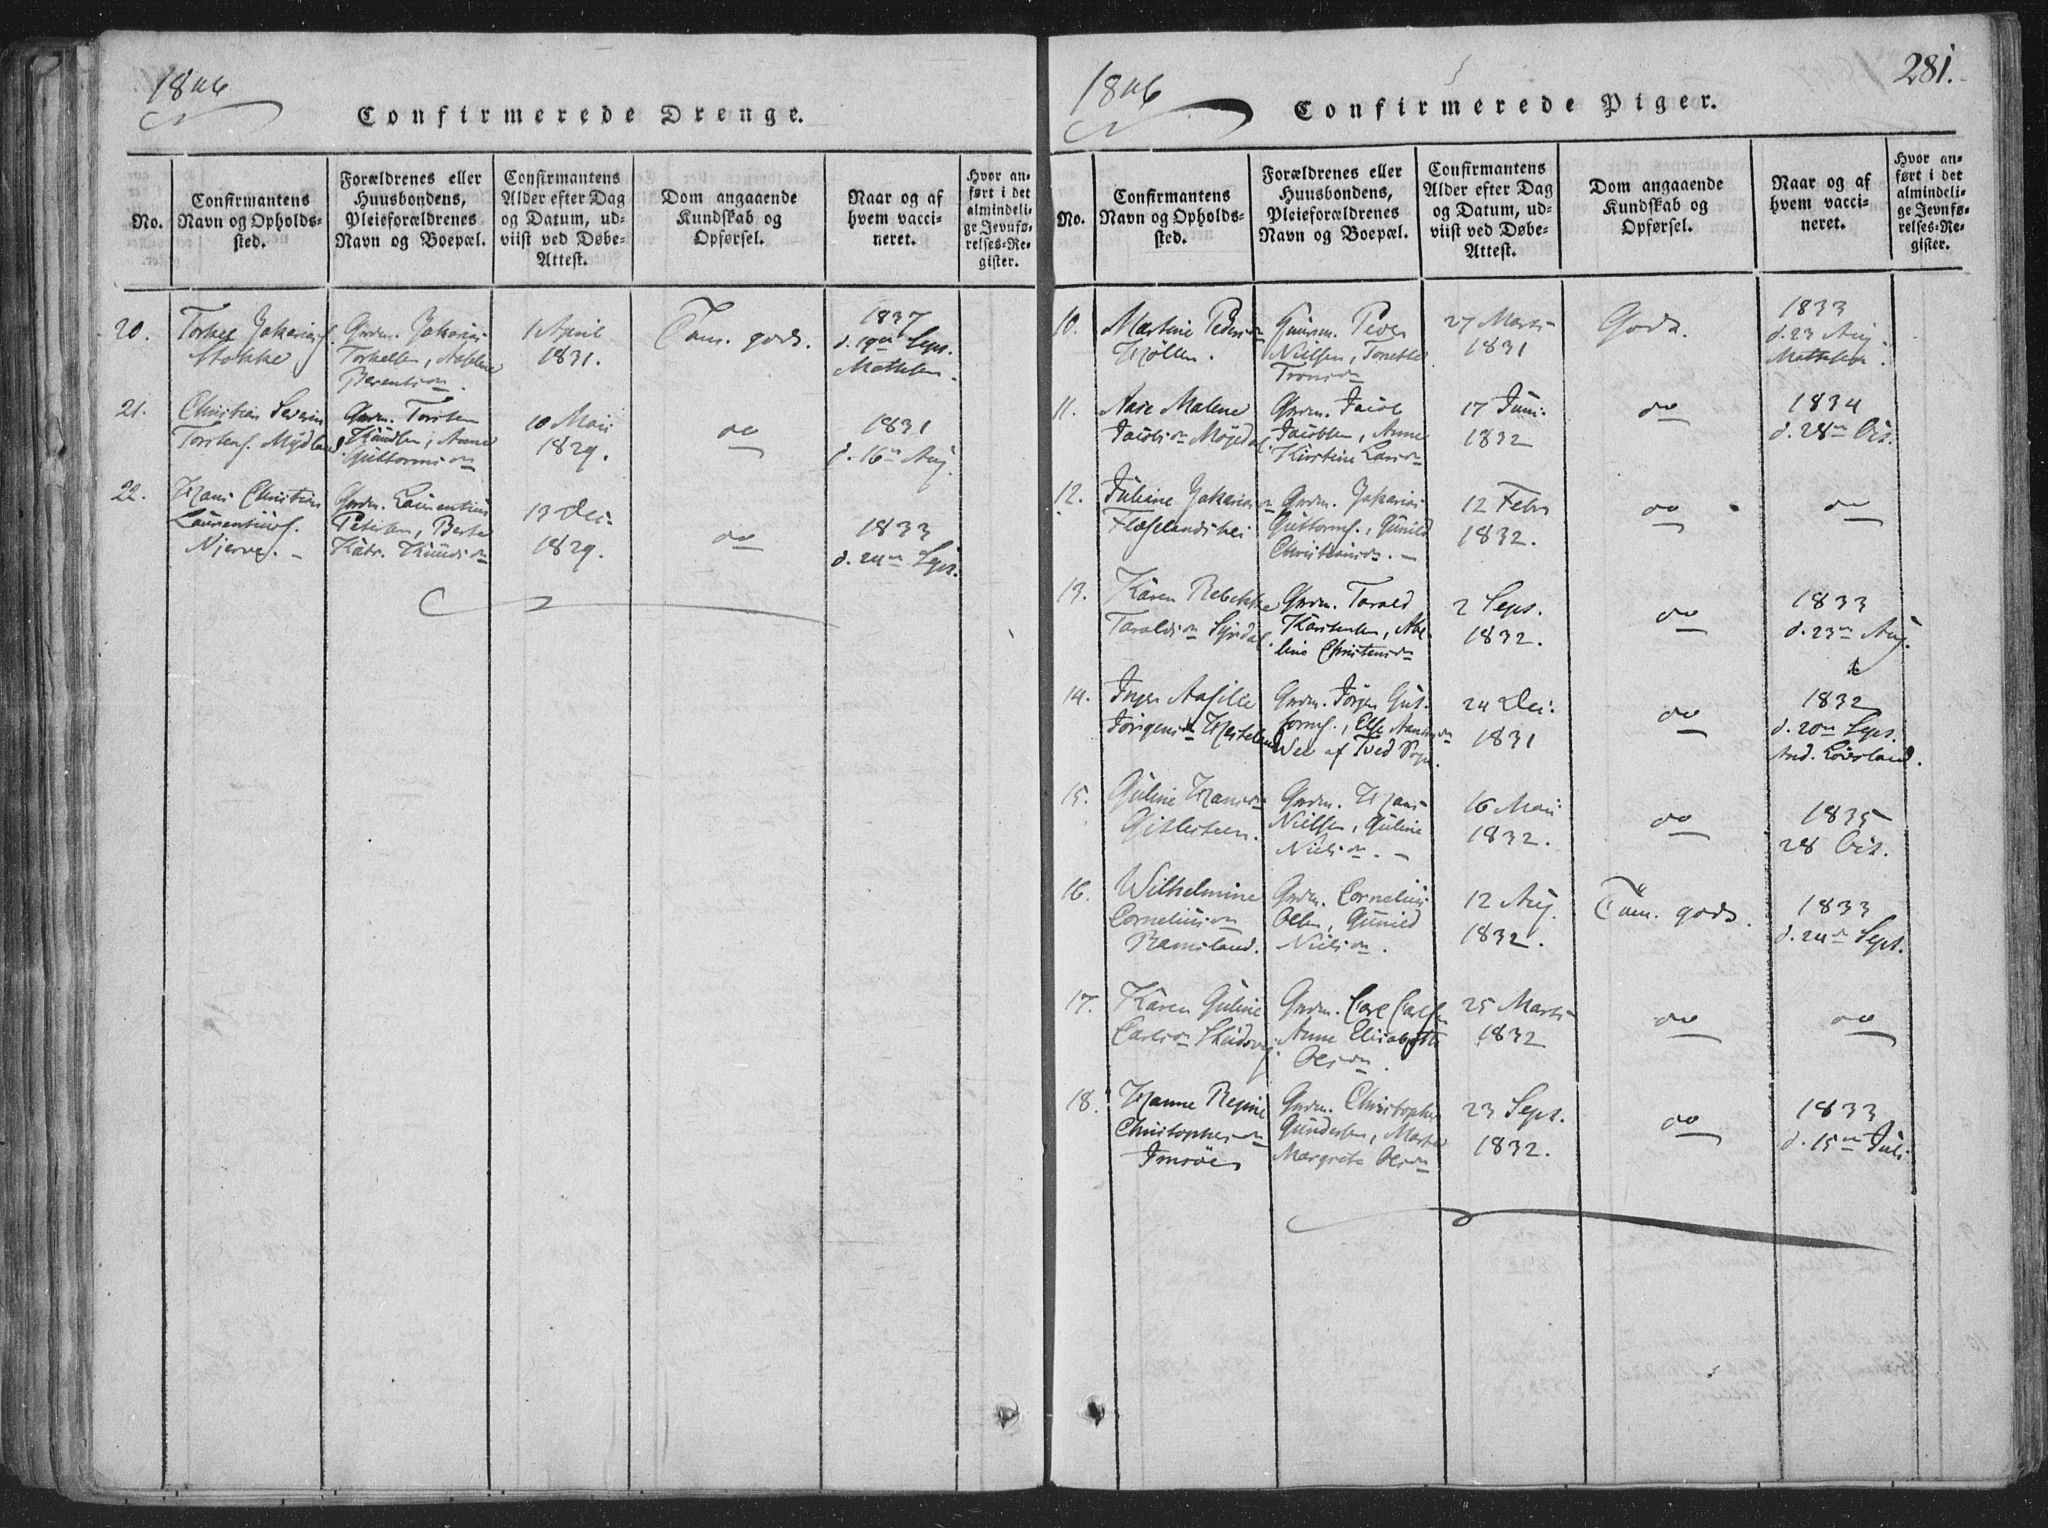 1846
Confirmerede Drenge.
No.
Confirmantens
Navn og Opholds-
sted.
Forældrenes eller
Huusbondens,
Pleieforældrenes
Navn og Boepæl.
Confirmantens
Alder efter Dag
og Datum, ud-
viist ved Døbe-
Attest.
Dom angaaende
Kundskab og
Opførsel.
Naar og af
hvem vacci-
neret.
Hvor an-
ført i det
almindeli-
ge Jevnfø-
relses-Re-
gister.
20.
Torkel Zakarias
Stokke
Gmdm. Zakarias
Torkelsen,
Berentsdn
1 April
1831.
Tem. godt.
1837
d. 19de Sept.
21.
Christian Severin
Torstens. Mydland
Gmdm. Torsten
Knudsen, Anne
Guttormsdn
10 Mai
1829.
do
1831
d. 16n Aug.
22.
Hans Christian
Laurentius.
Gmdm. Laurentius
Petersen, Berte
Katr. Knudsdn
13 Dec:
1829.
do
1833
d. 24n Sept.
1846
281.
Confirmerede Piger.
No.
Confirmantens
Navn og Opholds-
sted.
Forældrenes eller
Huusbondens,
Pleieforældrenes
Navn og Boepæl.
Confirmantens
Alder efter Dag
og Datum, ud-
viist ved Døbe-
Attest.
Dom angaaende
Kundskab og
Opførsel.
Naar og af
hvem vacci-
neret.
Hvor an-
ført i det
almindeli-
ge Jevnfø-
relses-Re-
gister.
10.
Martine Pedersdn
Peder
Nielsen, Tonette
27 Marts
1831
Godt.
1833
d. 23 Aug.
11.
Aase Malene
Jacobsdn
Gmdm. Jacob
Jacobsen, Anne
Kirstine Larsdn
17 Juni
1832
do
1834
d. 28n Oct.
12.
Juliane Zakariasdn
Flagelandshei
Gmdm. Zakarias
Guttorms., Gunild
Christiansdn. —
12 Febr
1832.
do
do
13.
Karen Rebekke
Taraldsdn
Gmdm. Tarald
Karstensen, Abe-
line Christensdn
2 Sept.
1832.
do
1833
d. 23n Aug.
14.
Inger
Jørgensdn
Gmdm. Jørgen Gut-
torms., Else
af Tved Sogn.
24 Dec:
1831
do
1832
d. 20n Sept.
And. Løvsland.
15.
Guline Hansdn
Gitlesteen.
Gmdm. Hans
Nielsen, Guline
Nielsdn. —
16 Mai
1832.
do
1835
28 Oct.
16.
Wilhelmine
Corneliusdn
Ramsland.
Gmdm. Cornelius
Olsen, Gunild
Nielsdn.
12 Aug.
1832.
Tem. godt.
1833
d. 24n Sept.
17.
Karen Guline
Carlsdn
Gmdm. Carl Carlsen
Anne Elisabeth
Olsdn.
25 Marts
1832
do
do
18.
Hanne Regine
Christophersdn
Gmdm. Christopher
Gundersen, Marte
Margrete Olsdn
23 Sept.
1832.
do
1833
d. 15n Juli